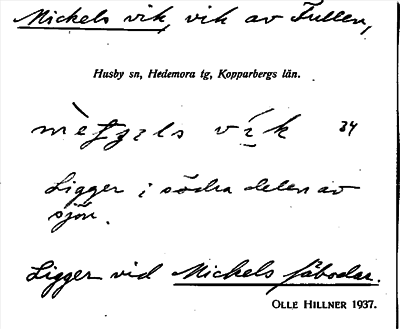 Mickels vik, vik av Fullen,
Husby sn, Hedemora tg, Kopparbergs län.
vík 34
Ligger i södra delen av
sjön.
Ligger vid Mickels fäbodar.
OLLE HILLNER 1937.